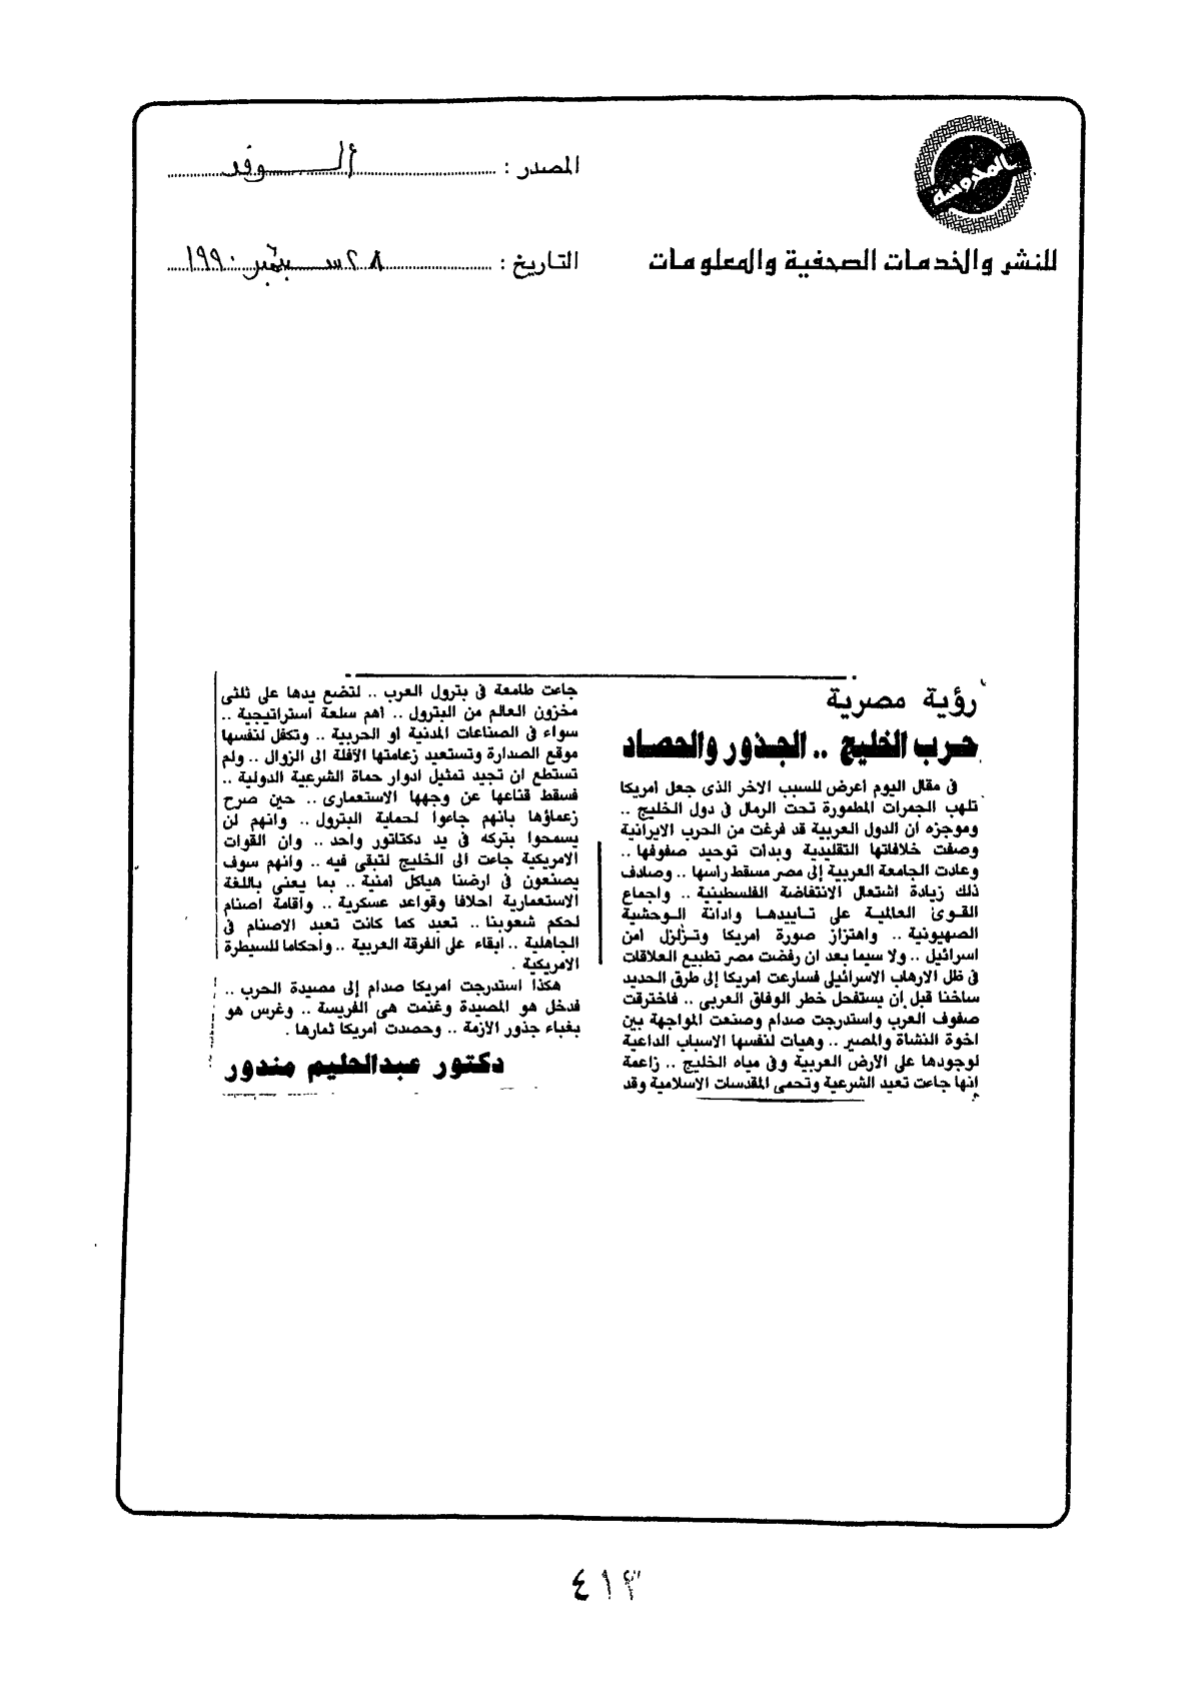 المصدر : الوفد
بالمدرسة
للنشر والخدمات الصحفية والمعلومات
التاريخ : ٢٨ سبتمبر ١٩٩٠
رؤية مصرية
حرب الخليج .. الجذور والحصاد
فى مقال اليوم أعرض للسبب الاخر الذى جعل أمريكا
تلهب الجمرات المطمورة تحت الرمال فى دول الخليج ..
وموجزه ان الدول العربية قد فرغت من الحرب الايرانية
وصفت خلافاتها التقليدية وبدات توحيد صفوفها ..
وعادت الجامعة العربية إلى مصر مسقط راسها .. وصادف
ذلك زيادة اشتعال الانتفاضة الفلسطينية .. واجماع
القوى العالمية على تاييدها وادانة الوحشية
الصهيونية .. واهتزاز صورة امريكا وتزلزل امن
اسرائيل .. ولا سيما بعد ان رفضت مصر تطبيع العلاقات
فى ظل الارهاب الاسرائيلى فسارعت امريكا إلى طرق الحديد
ساخنا قبل ان يستفحل خطر الوفاق العربى .. فاخترقت
صفوف العرب واستدرجت صدام وصنعت المواجهة بين
اخوة النشاة والمصير .. وهيات لنفسها الاسباب الداعية
لوجودها على الارض العربية وفى مياه الخليج .. زاعمة
انها جاءت تعيد الشرعية وتحمى المقدسات الاسلامية وقد
جاءت طامعة فى بترول العرب .. لتضع يدها على ثلثى
مخزون العالم من البترول .. اهم سلعة استراتيجية ..
سواء فى الصناعات المدنية او الحربية .. وتكفل لنفسها
موقع الصدارة وتستعيد زعامتها الآفلة الى الزوال .. ولم
تستطع ان تجيد تمثيل ادوار حماة الشرعية الدولية ..
فسقط قناعها عن وجهها الاستعمارى .. حين صرح
زعماؤها بانهم جاءوا لحماية البترول .. وانهم لن
يسمحوا بتركه فى يد دكتاتور واحد .. وان القوات
الامريكية جاءت الى الخليج لتبقى فيه .. وانهم سوف
يصنعون فى ارضنا هياكل امنية .. بما يعنى باللغة
الاستعمارية احلافا وقواعد عسكرية .. واقامة اصنام
لحكم شعوبنا .. تعبد كما كانت تعبد الاصنام فى
الجاهلية .. ابقاء على الفرقة العربية .. واحكاما للسيطرة
الامريكية .
هكذا استدرجت امريكا صدام إلى مصيدة الحرب ..
فدخل هو المصيدة وغنمت هى الفريسة .. وغرس هو
بغباء جذور الازمة .. وحصدت أمريكا ثمارها .
دكتور عبدالحليم مندور
٤١٣